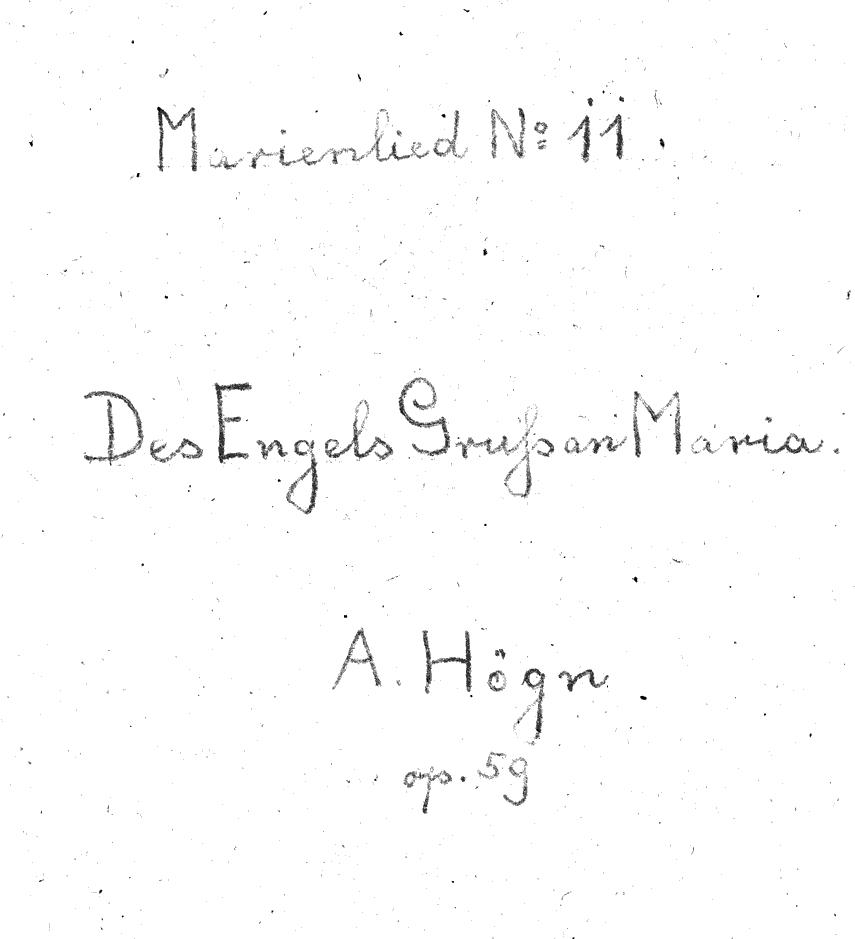 Marienlied Nº 11.
Des Engels Gruß an Maria.
A. Högn
op. 59